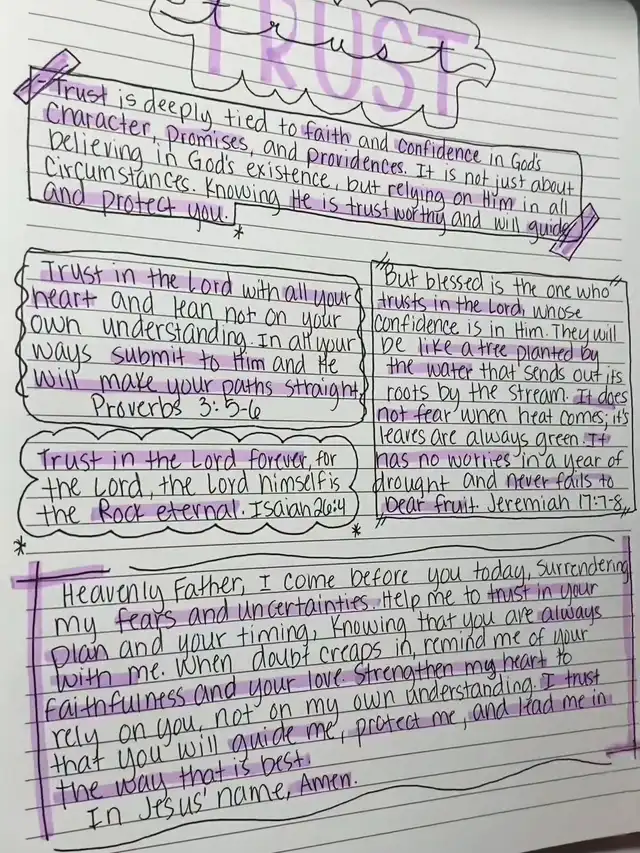 TRUST
trust
Trust is deeply tied to faith and confidence in God's
character, promises, and providences. It is not just about
believing in God's existence, but relying on Him in all
circumstances. Knowing He is trustworthy and will guide
and protect you.
*
Trust in the Lord with all your
heart and lean not on your
own understanding. In all your
ways submit to Him and He
will make your paths straight.
Proverbs 3:5-6
Trust in the Lord forever, for
the Lord, the Lord himself is
the Rock eternal. Isaiah 26:4
*
*
"But blessed is the one who"
trusts in the Lord, whose
confidence is in Him. They will
be like a tree planted by
the water that sends out its
roots by the stream. It does
not fear when heat comes; it's
leaves are always green. It
has no worries in a year of
drought and never fails to
bear fruit. Jeremiah 17:7-8
Heavenly Father, I come before you today, surrendering
my fears and uncertainties. Help me to trust in your
plan and your timing, knowing that you are always
with me. When doubt creaps in, remind me of your
faithfulness and your love. Strengthen my heart to
rely on you, not on my own understanding. I trust
that you will guide me, protect me, and lead me in
the way that is best.
In Jesus' name, Amen.